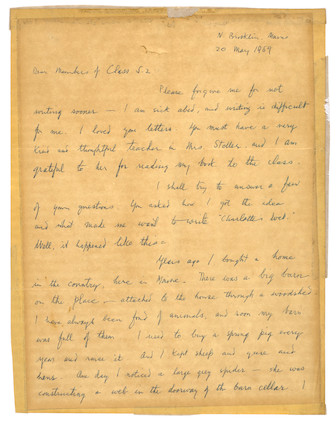 N. Brooklin, Maine
20 May 1969
Dear Members of Class 5-2
Please forgive me for not
writing sooner — I am sick abed, and writing is difficult
for me. I loved your letters. You must have a very
kind and thoughtful teacher in Mrs. Stoller and I am
grateful to her for reading my book to the class.
I shall try to answer a few
of your questions. You asked how I got the idea
and what made me want to write "Charlotte's Web."
Well, it happened like this —
Years ago I bought a home
in the country, here in Maine. There was a big barn
on the place — attached to the house through a woodshed.
I have always been fond of animals, and soon my barn
was full of them. I used to buy a spring pig every
year and raise it. And I kept sheep and geese and
hens. One day I noticed a large grey spider — she was
constructing a web in the doorway of the barn cellar. I